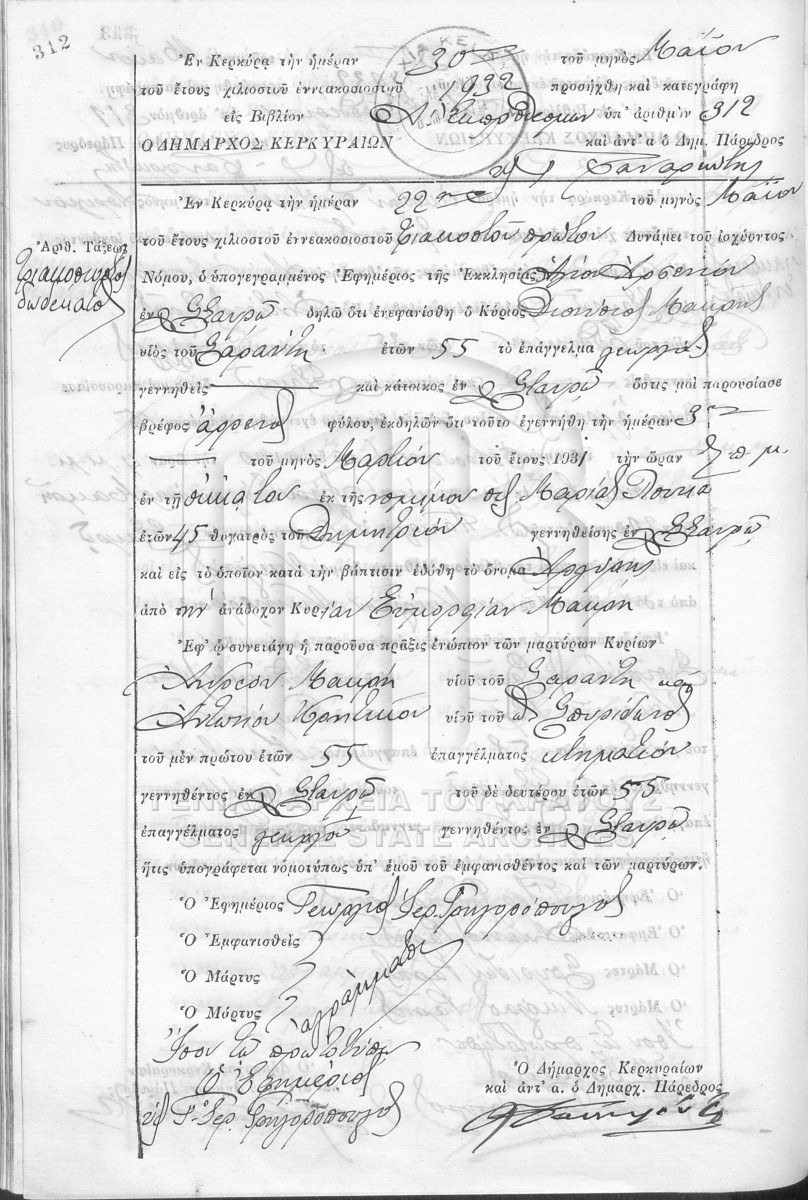 312
Ἐν Κερκύρᾳ τὴν ἡμέραν 30 τοῦ μηνὸς Μαΐου
τοῦ ἔτους χιλιοστοῦ ἐννεακοσιοστοῦ 1932 προσήχθη καὶ κατεγράφη
εἰς Βιβλίον ὑπ' ἀριθμὸν 312
Ο ΔΗΜΑΡΧΟΣ ΚΕΡΚΥΡΑΙΩΝ καὶ ἀντ' α ὁ Δημ. Πάρεδρος
Ἐν Κερκύρᾳ τὴν ἡμέραν 22 τοῦ μηνὸς Μαΐου
Ἀριθ. Τάξεως
Τριακοσιοστὸς
δωδέκατος
τοῦ ἔτους χιλιοστοῦ ἐννεακοσιοστοῦ τριακοστοῦ πρώτου Δυνάμει τοῦ ἰσχύοντος
Νόμου, ὁ ὑπογεγραμμένος Ἐφημέριος τῆς Ἐκκλησίας Ἁγίου Ἀρσενίου
ἐν Σταυρῷ δηλῶ ὅτι ἐνεφανίσθη ὁ Κύριος Διονύσιος Μακρῆς
υἱὸς τοῦ Σαράντη ἐτῶν 55 τὸ ἐπάγγελμα γεωργὸς
γεννηθεὶς — καὶ κάτοικος ἐν Σταυρῷ ὅστις μοὶ παρουσίασε
βρέφος ἄρρενος φύλου, ἐκδηλῶν ὅτι τοῦτο ἐγεννήθη τὴν ἡμέραν 3
— τοῦ μηνὸς Μαρτίου τοῦ ἔτους 1931 τὴν ὥραν 7 π.μ.
ἐν τῇ οἰκίᾳ του ἐκ τῆς νομίμου σ. Μαρίας
ἐτῶν 45 θυγατρὸς τοῦ Δημητρίου γεννηθείσης ἐν Σταυρῷ
καὶ εἰς τὸ ὁποῖον κατὰ τὴν βάπτισιν ἐδόθη τὸ ὄνομα
ἀπὸ τὴν ἀνάδοχον Κυρίαν Εὐμορφίαν Μακρῆ
Ἐφ' ᾧ συνετάγη ἡ παροῦσα πρᾶξις ἐνώπιον τῶν μαρτύρων Κυρίων
Ἀνδρέου Μακρῆ υἱοῦ τοῦ Σαράντη καὶ
Ἀντωνίου Κρητικοῦ υἱοῦ τοῦ Σπυρίδωνος
τοῦ μὲν πρώτου ἐτῶν 55 ἐπαγγέλματος κτηματίου
γεννηθέντος ἐν Σταυρῷ τοῦ δὲ δευτέρου ἐτῶν 55
ΓΕΝΙΚΑ ΑΡΧΕΙΑ ΤΟΥ ΚΡΑΤΟΥΣ
ἐπαγγέλματος γεωργοῦ γεννηθέντος ἐν Σταυρῷ
GENERAL STATE ARCHIVES
ἥτις ὑπογράφεται νομοτύπως ὑπ' ἐμοῦ τοῦ ἐμφανισθέντος καὶ τῶν μαρτύρων.
Ὁ Ἐφημέριος Γεώργιος Ἱερ. Γρηγορόπουλος
Ὁ Ἐμφανισθεὶς
Ὁ Μάρτυς
Ὁ Μάρτυς
ἀγράμματοι
Ἴσον τῷ πρωτοτύπῳ
Ὁ Ἐφημέριος
Γ. Ἱερ. Γρηγορόπουλος
Ὁ Δήμαρχος Κερκυραίων
καὶ ἀντ' α. ὁ Δημαρχ. Πάρεδρος